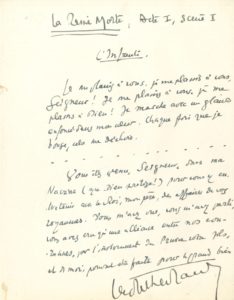 La Reine Morte, Acte I, Scène I
L'Infante.
Je me plains à vous, je me plains à vous,
Seigneur ! Je me plains à vous, je me
plains à Dieu ! Je marche avec un glaive
enfoncé dans mon cœur. Chaque fois que je
bouge, cela me déchire.
Vous êtes venu, Seigneur, dans ma
Navarre (que Dieu protège !) pour vous y en
tretenir avec le Roi, mon père, des affaires de vos
royaumes. Vous m'avez vue, vous m'avez parlé,
vous avez cru qu'une alliance entre nos cou-
ronnes, par l'instrument du Prince votre fils,
et de moi, pouvait être faite pour le grand bien